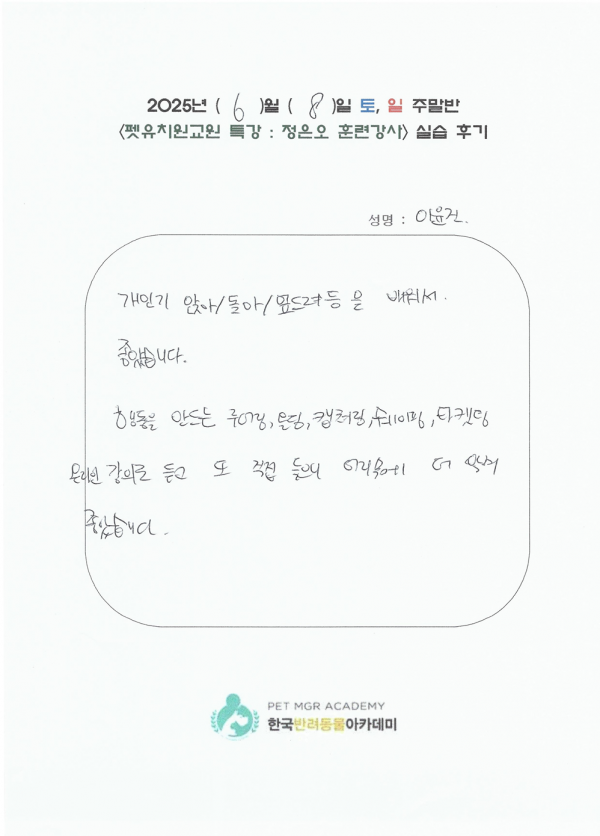 2025년 ( 6 )월 ( 8 )일 토, 일 주말반
<펫유치원교원 특강 : 정은오 훈련강사> 실습 후기
성명 : 이윤진.
개인기 앉아/돌아/엎드려 등 을 배워서.
좋았습니다.
행동을 만드는 루어링, 몰딩, 캡쳐링, 쉐이핑, 타켓팅
온라인 강의로 듣고 또 직접 들으니 더
좋았습니다.
PET MGR ACADEMY
한국반려동물아카데미